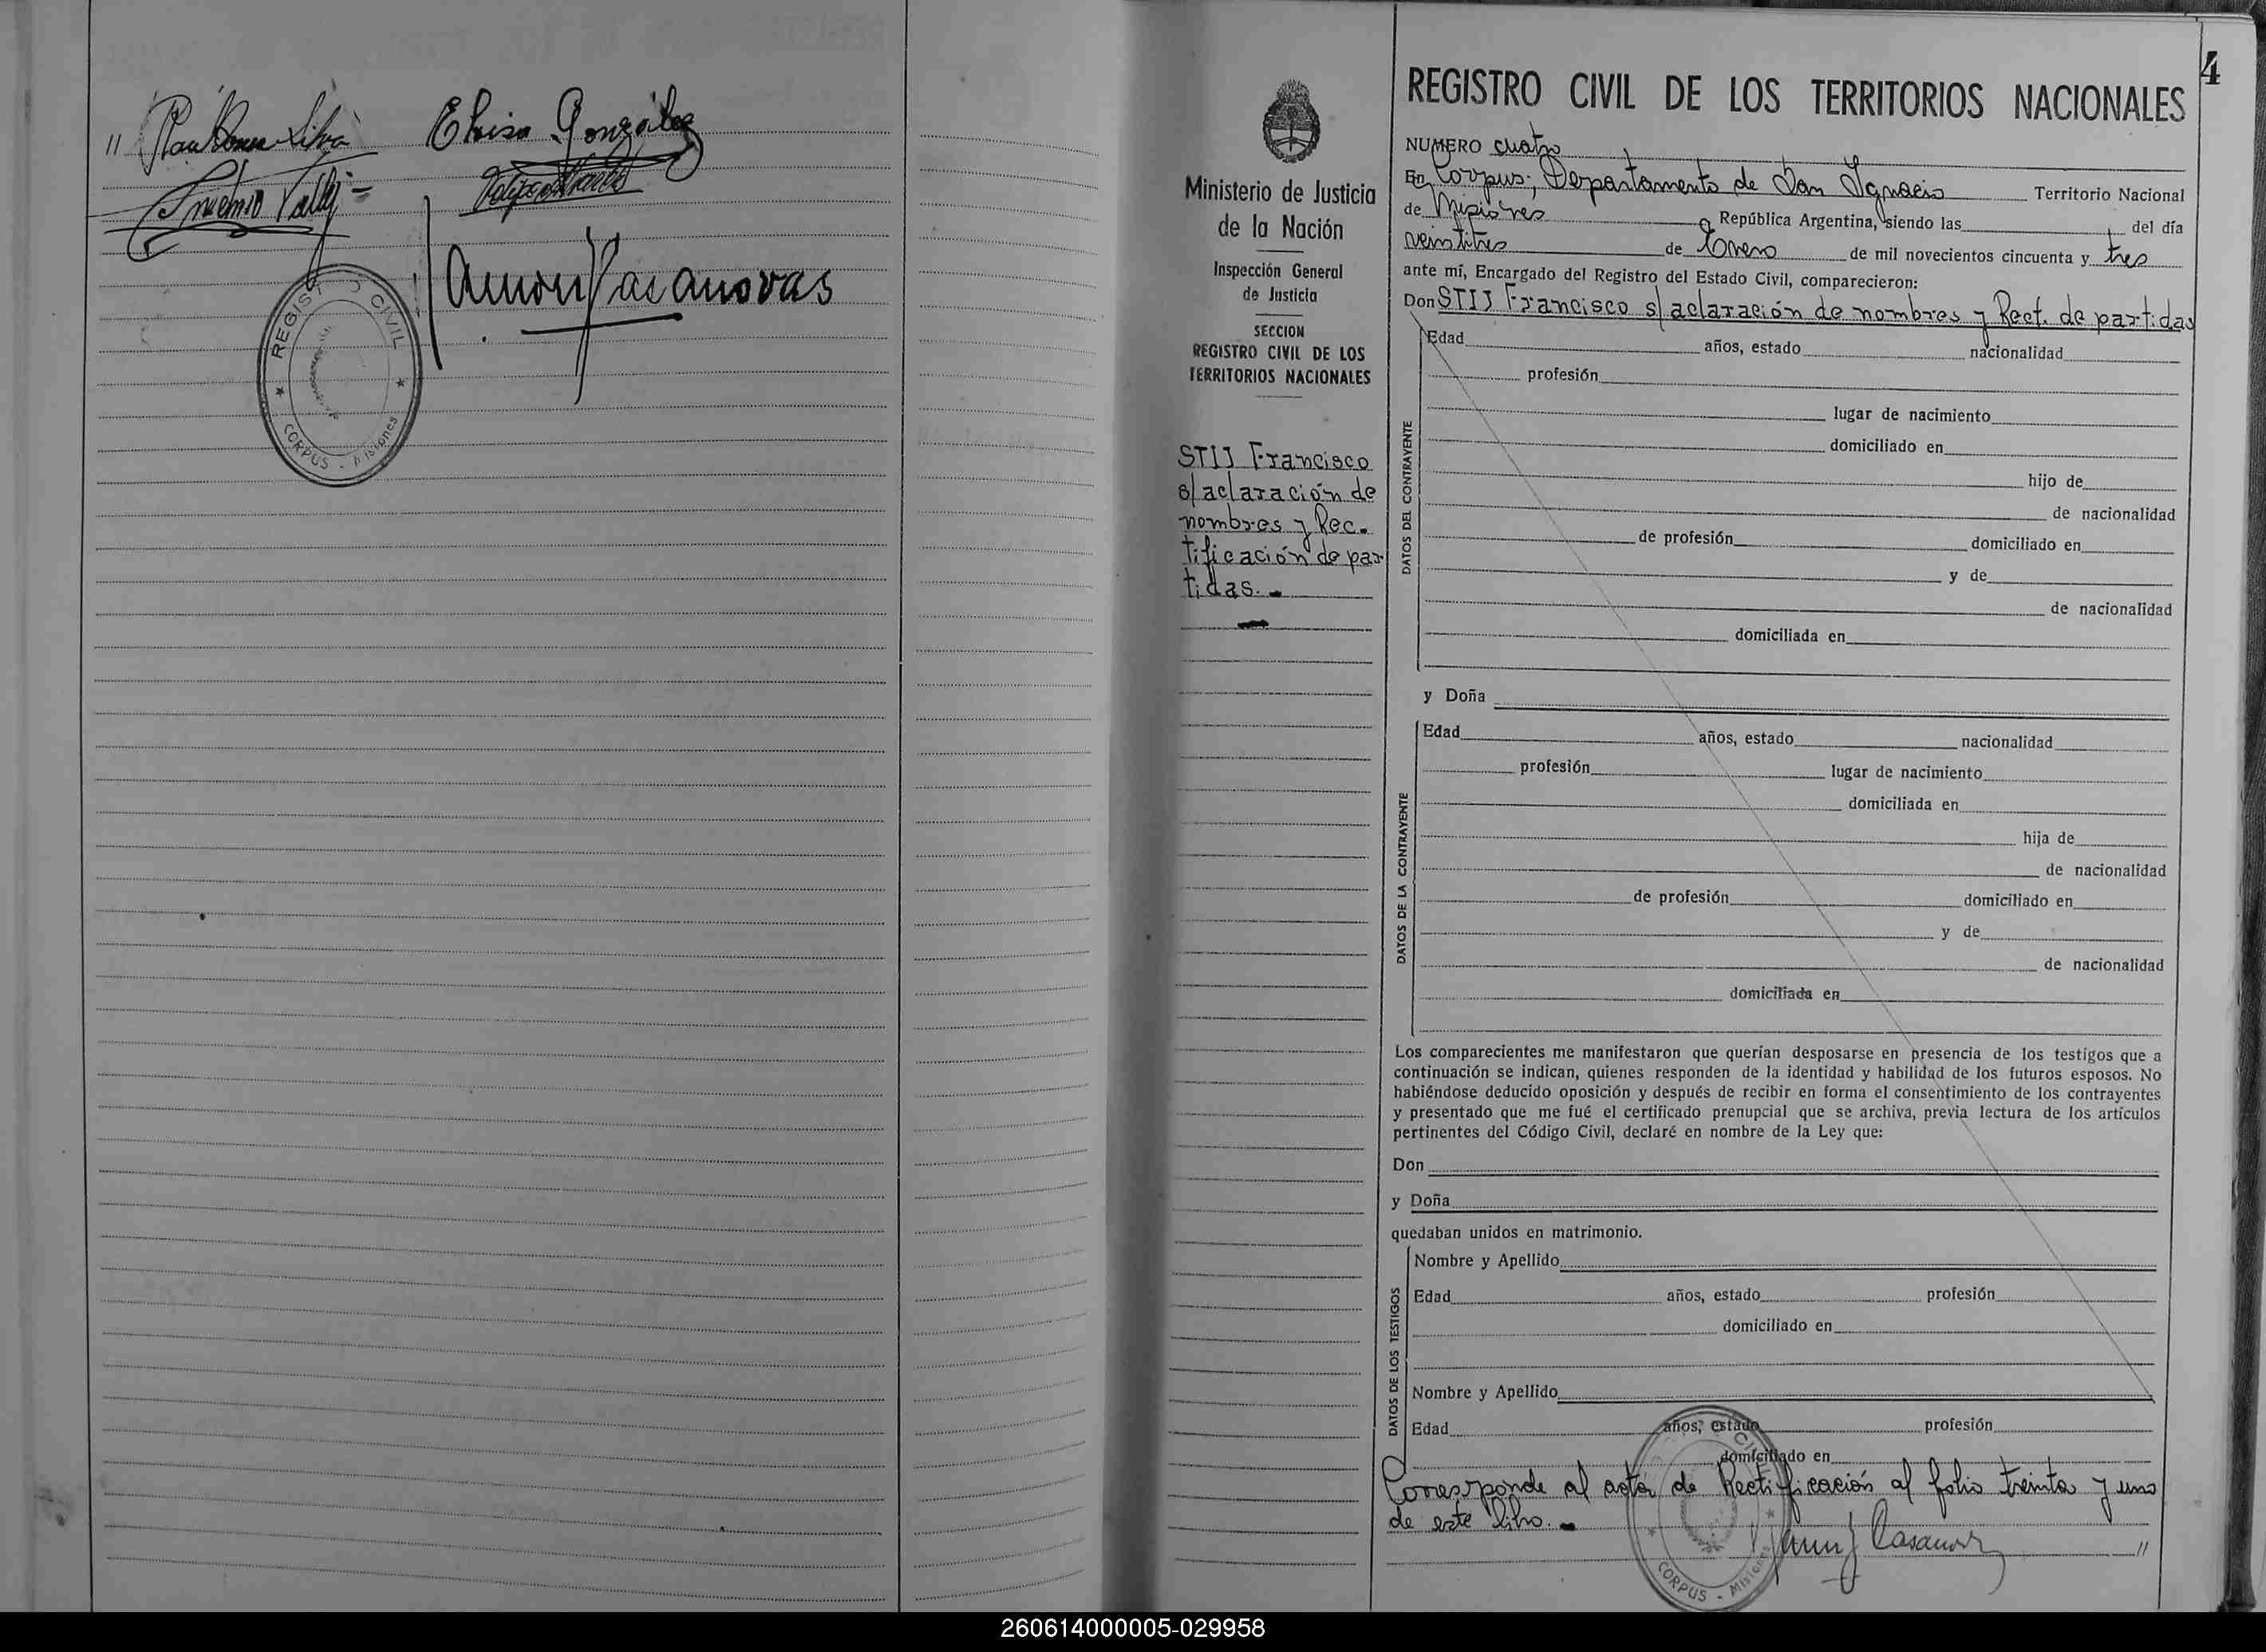 Eloisa González
REGISTRO CIVIL
CORPUS - Misiones
4
Ministerio de Justicia
de la Nación
Inspección General
de Justicia
SECCION
REGISTRO CIVIL DE LOS
TERRITORIOS NACIONALES
STIJ Francisco
s/aclaración de
nombres y Rec-
tificación de par
tidas.-
REGISTRO CIVIL DE LOS TERRITORIOS NACIONALES
NUMERO cuatro
En Corpus; Departamento de San Ignacio Territorio Nacional
de Misiones República Argentina, siendo las del día
veintitres de Enero de mil novecientos cincuenta y tres
ante mí, Encargado del Registro del Estado Civil, comparecieron:
Don STIJ Francisco s/aclaración de nombres y Rect. de partidas
DATOS DEL CONTRAYENTE
Edad años, estado nacionalidad
profesión
lugar de nacimiento
domiciliado en
hijo de
de nacionalidad
de profesión domiciliado en
y de
de nacionalidad
domiciliada en
y Doña
DATOS DE LA CONTRAYENTE
Edad años, estado nacionalidad
profesión lugar de nacimiento
domiciliada en
hija de
de nacionalidad
de profesión domiciliado en
y de
de nacionalidad
domiciliada en
Los comparecientes me manifestaron que querían desposarse en presencia de los testigos que a
continuación se indican, quienes responden de la identidad y habilidad de los futuros esposos. No
habiéndose deducido oposición y después de recibir en forma el consentimiento de los contrayentes
y presentado que me fué el certificado prenupcial que se archiva, previa lectura de los artículos
pertinentes del Código Civil, declaré en nombre de la Ley que:
Don
y Doña
quedaban unidos en matrimonio.
DATOS DE LOS TESTIGOS
Nombre y Apellido
Edad años, estado profesión
domiciliado en
Nombre y Apellido
Edad años, estado profesión
domiciliado en
Corresponde al acta de Rectificación al folio treinta y uno
de este libro.-
Casanovas
CORPUS - Misiones
260614000005-029958